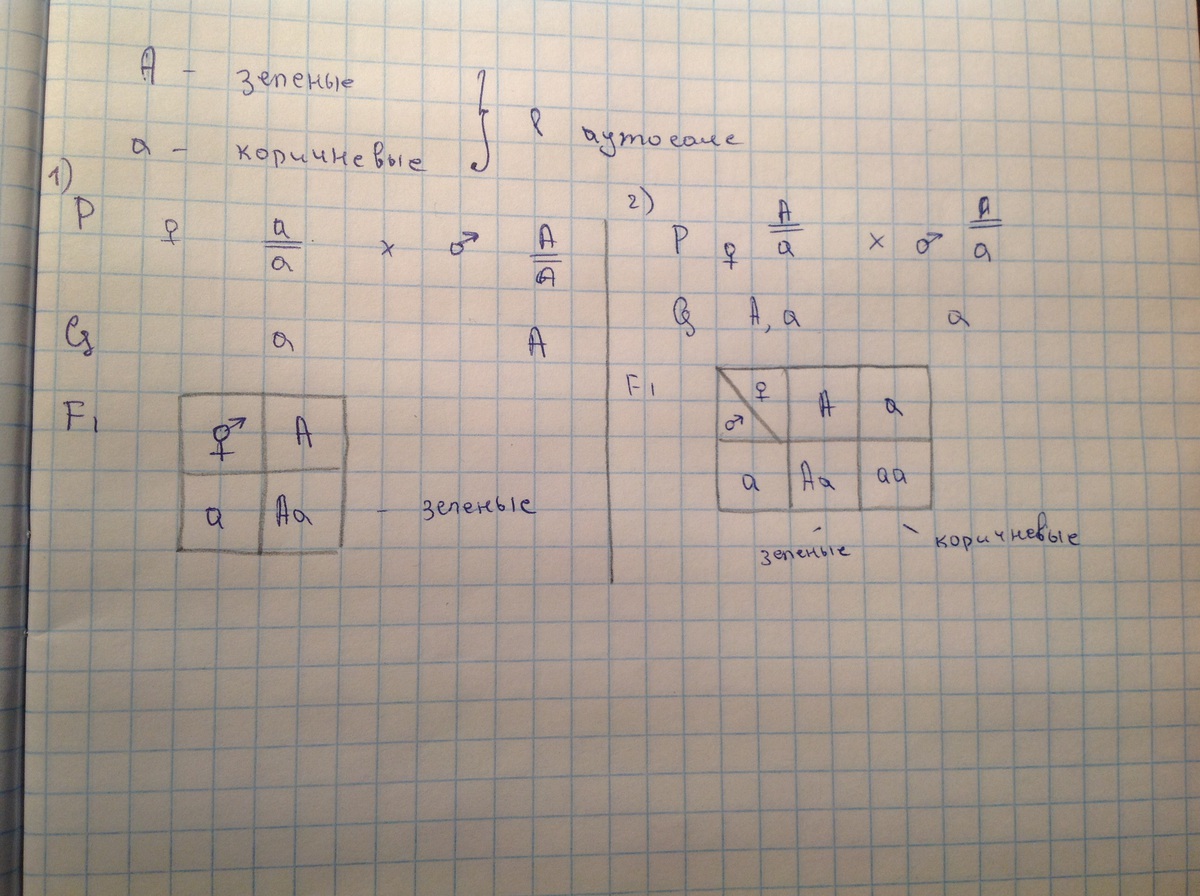 A - зеленые
а - коричневые
} в аутосоме
1)
P ♀ a/a x ♂ A/A
G a A
F1
♀♂ A
a Aa - зеленые
2)
P ♀ A/a x ♂ A/a
G A, a a
F1
♂ ♀ A a
a Aa aa
зеленые коричневые